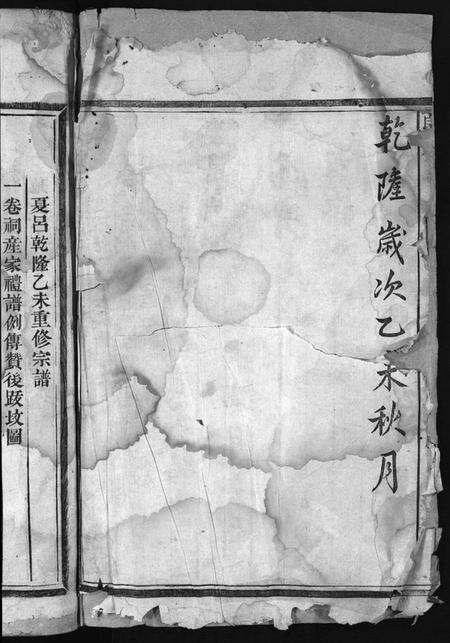 乾隆歲次乙未秋月
夏呂乾隆乙未重修宗譜
一卷祠産家禮譜例傳贊後跋坟圖